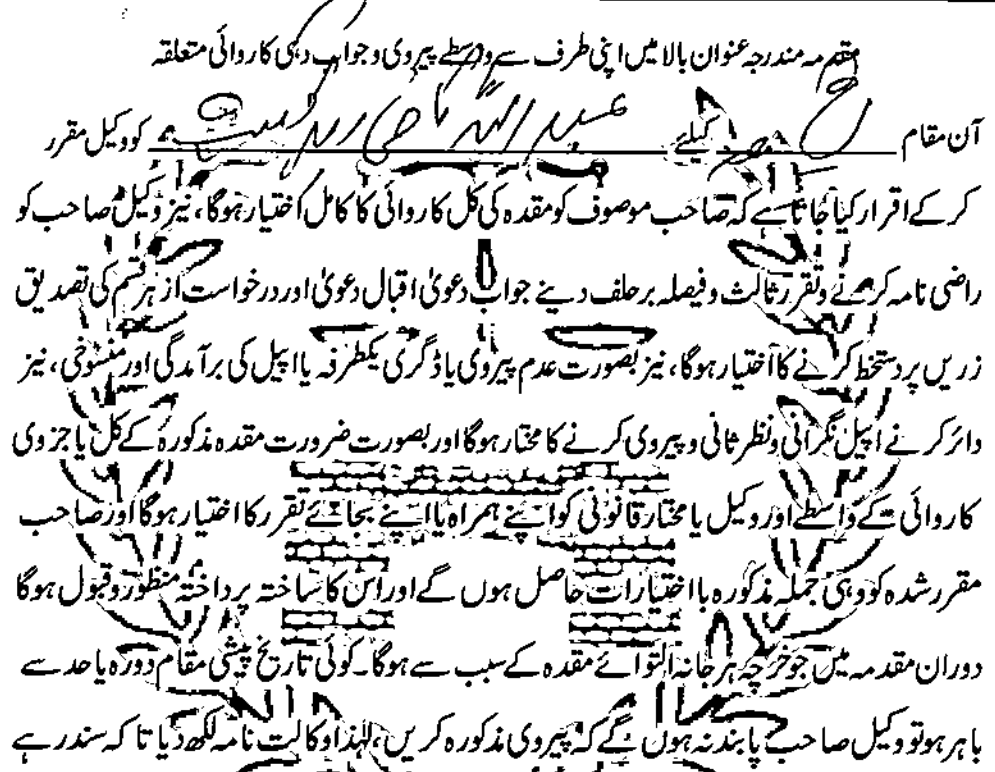 مقدمہ مندرجہ عنوان بالا میں اپنی طرف سے واسطے پیروی و جواب دہی کاروائی متعلقہ
آن مقام کیلئے کو وکیل مقرر
کر کے اقرار کیا جاتا ہے کہ صاحب موصوف کو مقدہ کی کل کاروائی کا کامل اختیار ہوگا، نیز وکیل صاحب کو
راضی نامہ کرنے و تقرر ثالث و فیصلہ بر حلف دینے جواب دعویٰ اقبال دعویٰ اور درخواست از ہر قسم کی تصدیق
زریں پر دستخط کرنے کا اختیار ہوگا، نیز بصورت عدم پیروی یا ڈگری یکطرفہ یا اپیل کی برآمدگی اور منسوخی، نیز
دائر کرنے اپیل نگرانی و نظر ثانی و پیروی کرنے کا مختار ہوگا اور بصورت ضرورت مقدہ مذکورہ کے کل یا جزوی
کاروائی کے واسطے اور وکیل یا مختار قانونی کو اپنے ہمراہ یا اپنے بجائے تقرر کا اختیار ہوگا اور صاحب
مقرر شدہ کو وہی جملہ مذکورہ بااختیارات حاصل ہوں گے اور اس کا ساختہ پرداختہ منظور و قبول ہوگا
دوران مقدمہ میں جو خرچہ ہرجانہ التوائے مقدہ کے سبب سے ہوگا۔ کوئی تاریخ پیشی مقام دورہ یا حد سے
باہر ہو تو وکیل صاحب پابند نہ ہوں گے کہ پیروی مذکورہ کریں، لہذا وکالت نامہ لکھ دیا تا کہ سند رہے